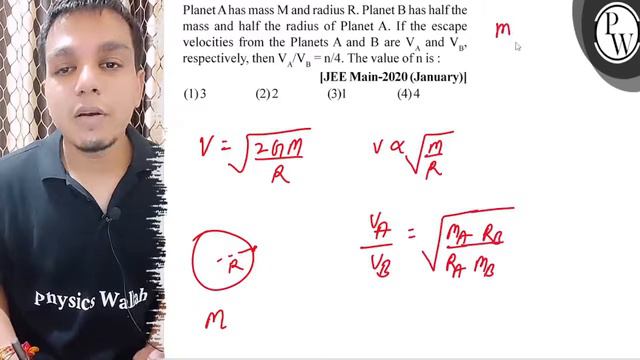 Planet A has mass M and radius R. Planet B has half the
mass and half the radius of Planet A. If the escape
velocities from the Planets A and B are V_A and V_B,
respectively, then V_A/V_B = n/4. The value of n is :
[JEE Main-2020 (January)]
(1) 3 (2) 2 (3)1 (4) 4
m
PW
V = √(2GM/R)
V ∝ √(M/R)
V_A/V_B = √(M_A R_B / R_A M_B)
R
M
Physics Wallah